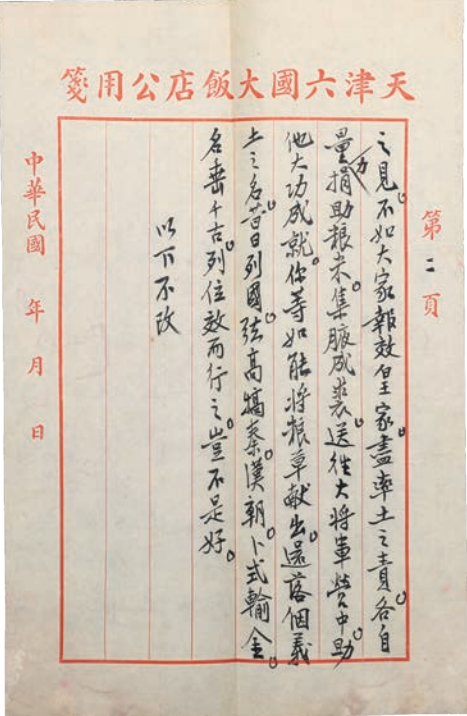 天津六國大飯店公用箋
第二頁
之見。不如大家報效皇家。盡率土之責。各自
量力捐助粮米。集腋成裘。送往大將軍營中。助
他大功成就。你等如能將粮草献出。還落個義
士之名。昔日列國。弦高犒秦。漢朝。卜式輸金。
名垂千古。列位效而行之。豈不是好。
以下不改
中華民國 年 月 日